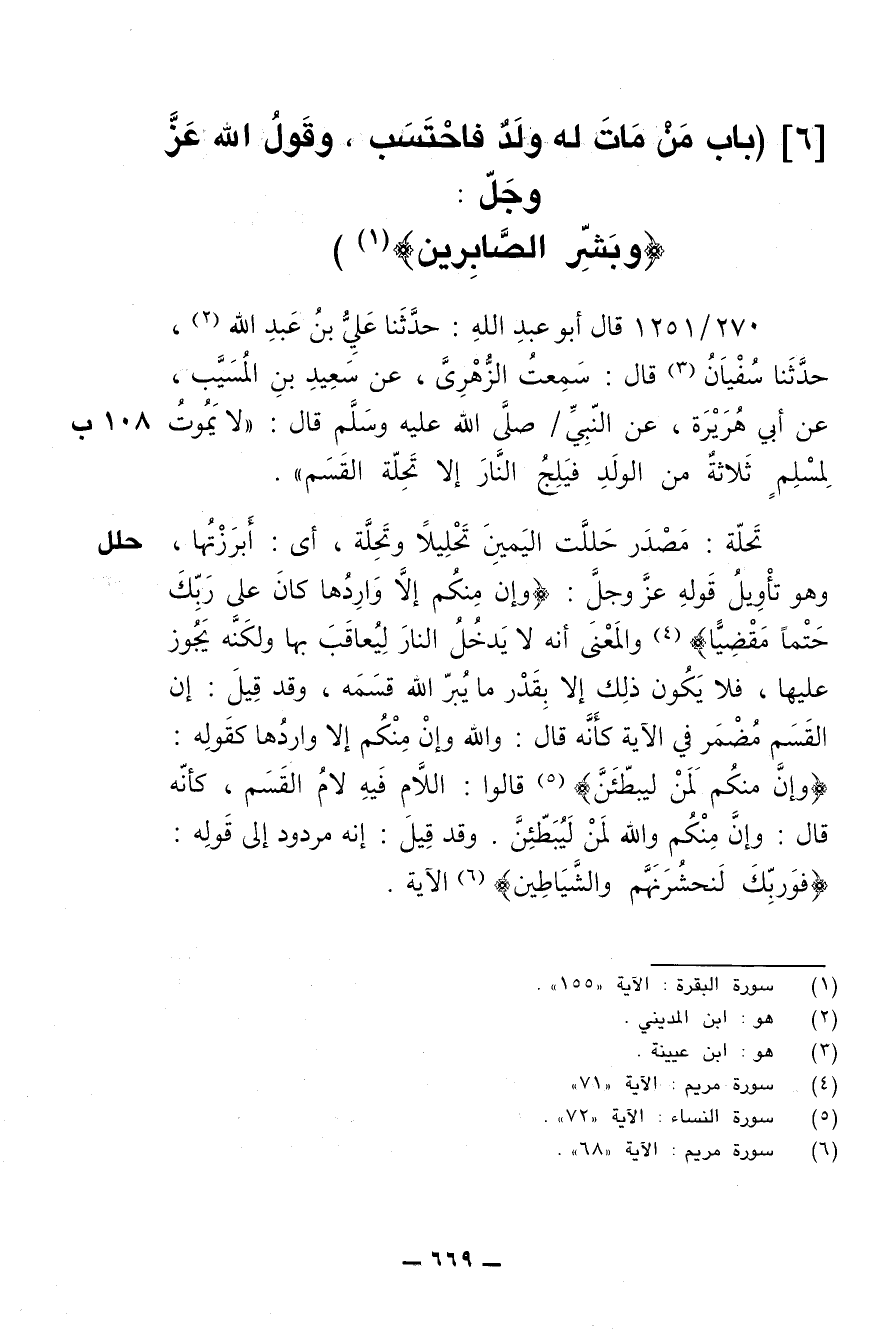 [٦] (باب مَنْ مَاتَ له ولَدٌ فاحْتَسَب ، وقَولُ الله عَزَّ
وجَلّ :
﴿وبَشِّرِ الصَّابِرين﴾(١) )
١٢٥١/٢٧٠ قال أبو عبدِ اللهِ : حدَّثَنا عَليُّ بنُ عَبدِ الله (٢) ،
حدَّثَنا سُفْيَانُ (٣) قال : سَمِعتُ الزُّهْرِىَّ ، عن سَعِيدِ بنِ المُسَيَّب ،
عن أبي هُرَيْرَة ، عن النّبِيِّ / صلَّى الله عليه وسَلَّم قال : «لا يَمُوتُ ١٠٨ ب
لِمسْلِمٍ ثَلاثةٌ من الولَدِ فيَلِجُ النَّارَ إلا تَحِلّة القَسَم» .
تَحلّة : مَصْدَر حَللَّت اليَمينَ تَحْلِيلًا وتَحِلَّة ، أى : أَبرَزْتُها ، حلل
وهو تأْوِيلُ قَولهِ عزَّ وجلَّ : ﴿وإن مِنكُم إلَّا وَارِدُها كانَ على رَبِّكَ
حَتْماً مَقْضِيًّا﴾ (٤) والمَعْنَى أنه لا يَدخُلُ النارَ لِيُعاقَبَ بها ولكنَّه يَجُوز
عليها ، فلا يَكُون ذلِك إلا بِقَدْر ما يُبرّ الله قسَمَه ، وقد قِيلَ : إن
القَسَم مُضْمَر في الآية كأنَّه قال : والله وإنْ مِنْكُم إلا واردُها كقَولِه :
﴿وإنَّ منكُم لَمَنْ ليبطّئَنَّ﴾ (٥) قالوا : اللَّام فَيهِ لامُ القَسَم ، كأنّه
قال : وإنَّ مِنْكُم والله لمَنْ لَيُبَطّئِنَّ . وقد قِيلَ : إنه مردود إلى قَولِه :
﴿فوَربِّكَ لَنحشُرَنَهَّم والشَّيَاطِين﴾ (٦) الآية .
(١) سورة البقرة : الآية «١٥٥» .
(٢) هو : ابن المديني .
(٣) هو : ابن عيينة .
(٤) سورة مريم : الآية «٧١»
(٥) سورة النساء : الآية «٧٢» .
(٦) سورة مريم : الآية «٦٨» .
— ٦٦٩ —